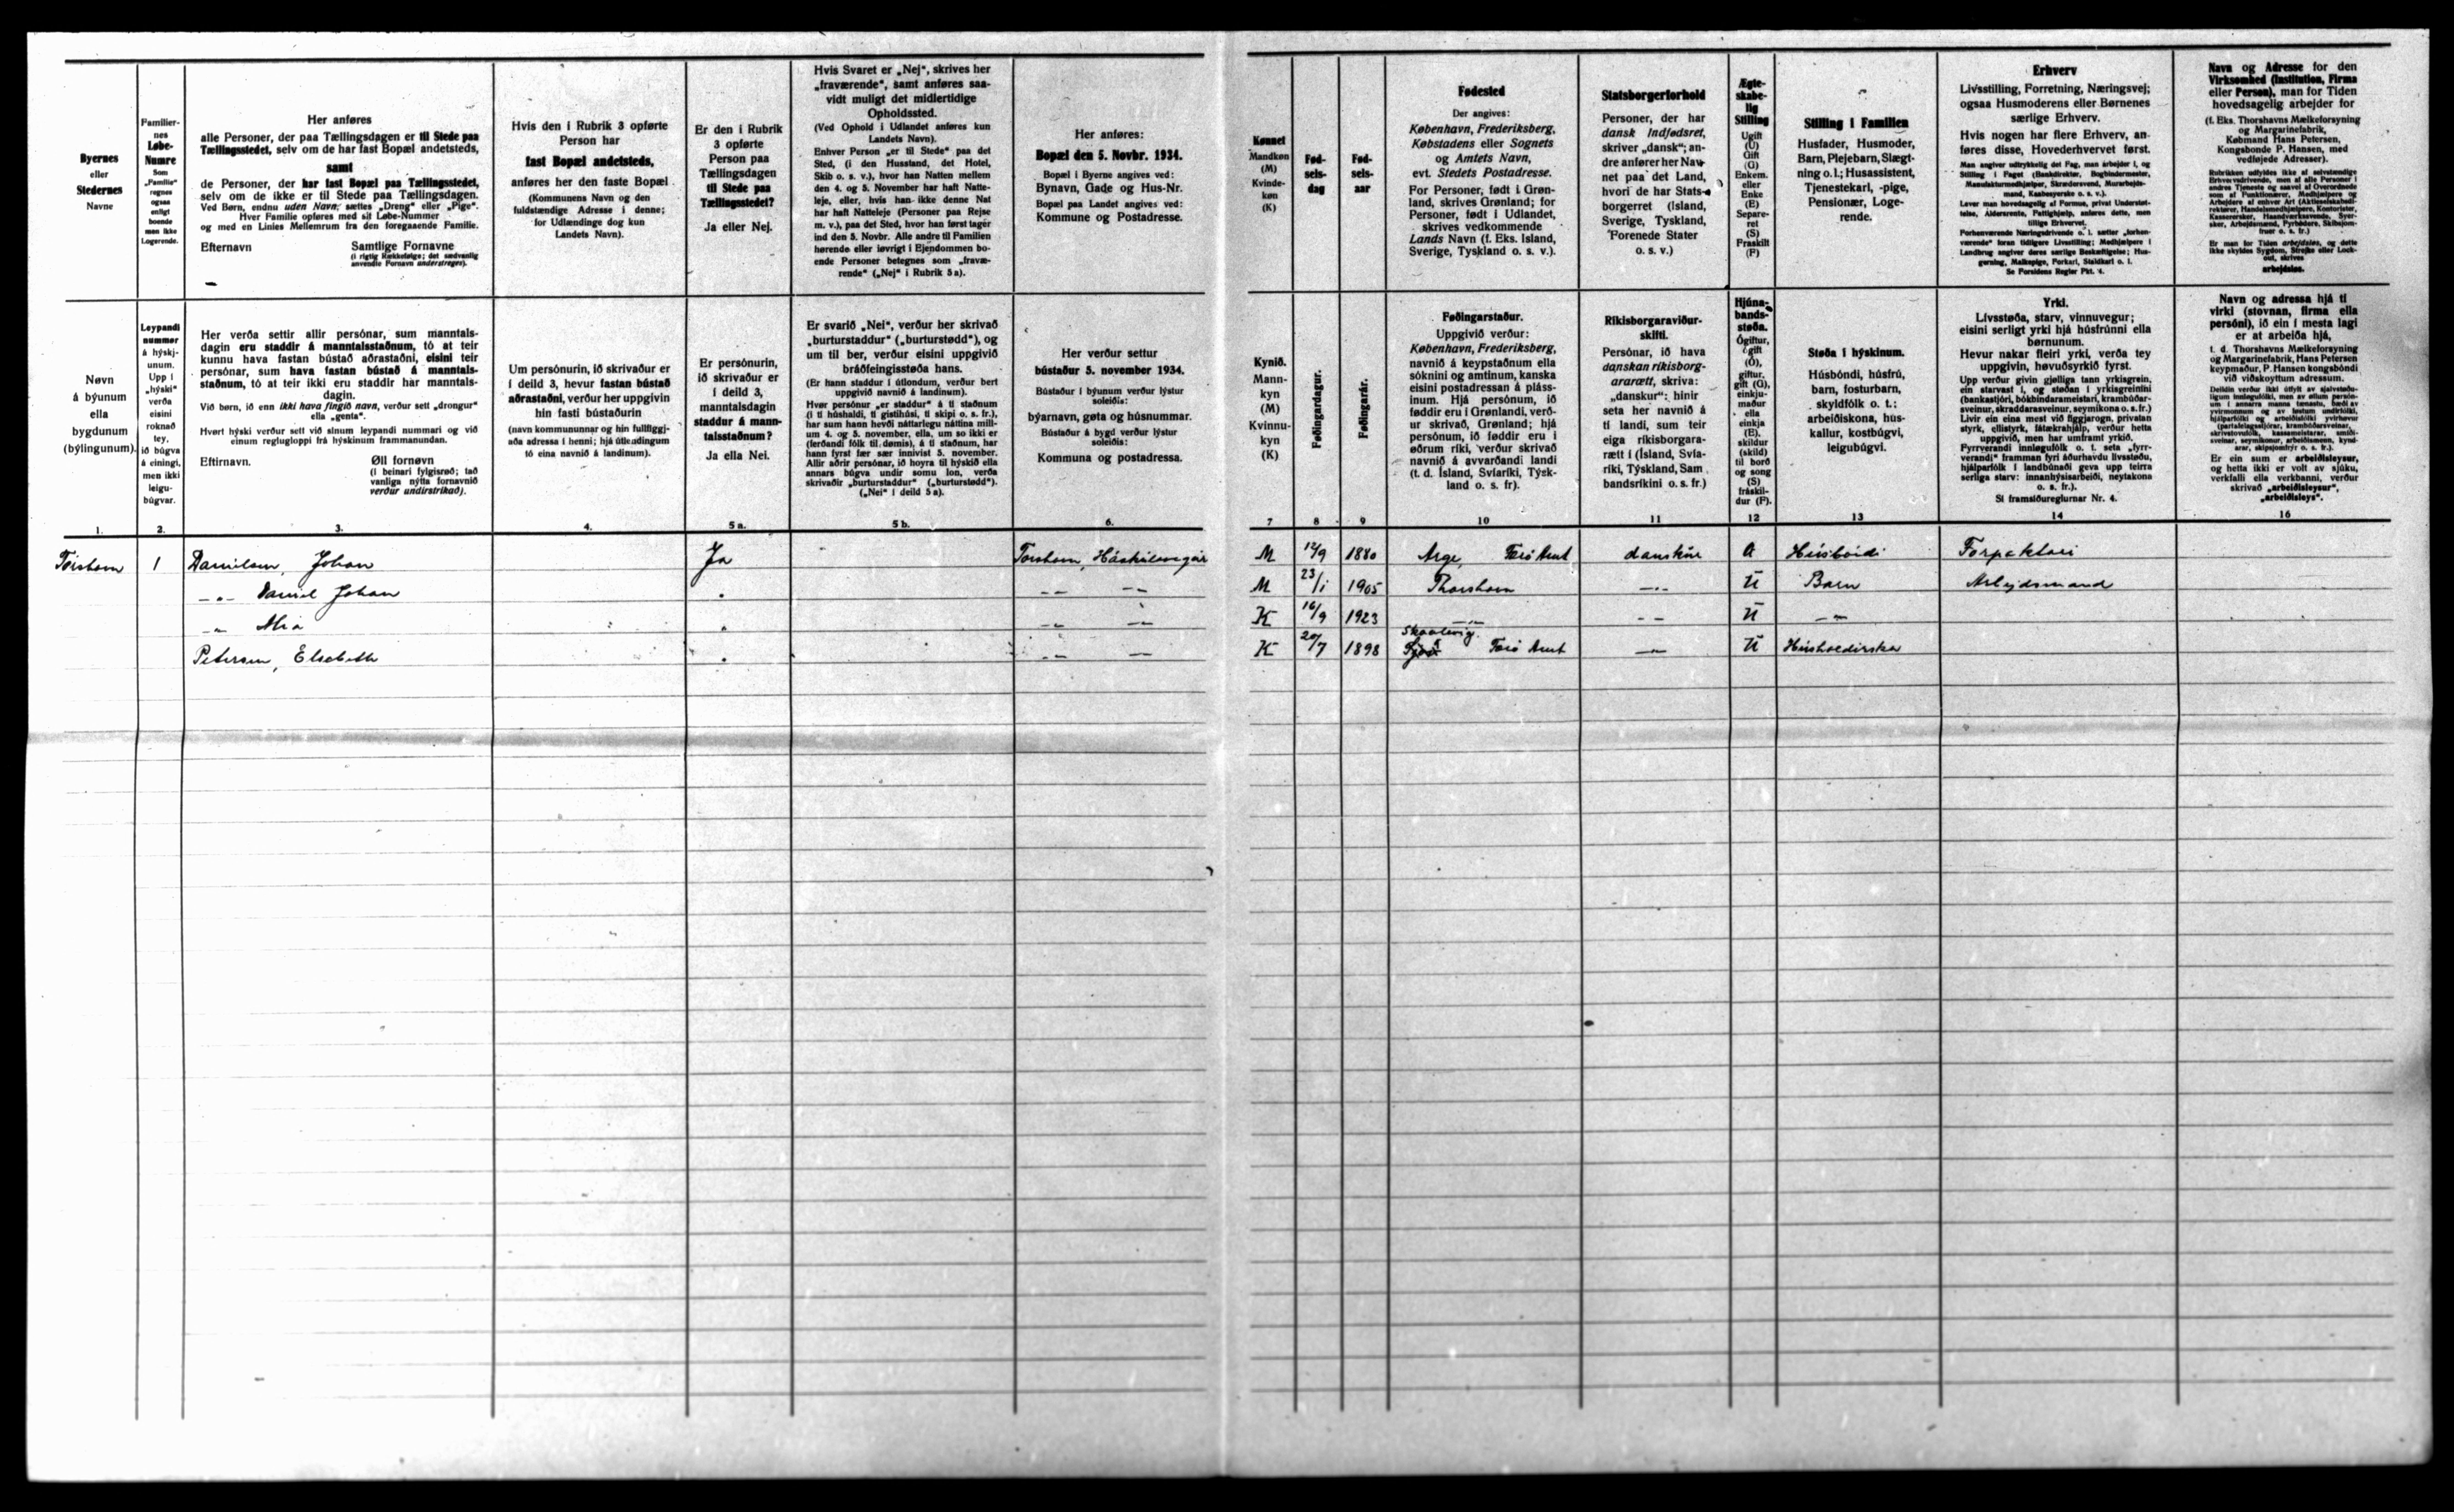 Byernes
eller
Stedernes
Navne
Familier-
nes
Løbe-
Numre
Som
„Familie"
regnes
ogsaa
enligt
boende
men ikke
Logerende.
Her anføres
alle Personer, der paa Tællingsdagen er til Stede paa
Tællingsstedet, selv om de har fast Bopæl andetsteds,
samt
de Personer, der har fast Bopæl paa Tællingsstedet,
selv om de ikke er til Stede paa Tællingsdagen.
Ved Børn, endnu uden Navn, sættes „Dreng" eller „Pige".
Hver Familie opføres med sit Løbe-Nummer
og med en Linies Mellemrum fra den foregaaende Familie.
Efternavn Samtlige Fornavne
(i rigtig Rækkefølge; det sædvanlig
anvendte Fornavn understreges).
Hvis den i Rubrik 3 opførte
Person har
fast Bopæl andetsteds,
anføres her den faste Bopæl
(Kommunens Navn og den
fuldstændige Adresse i denne;
for Udlændinge dog kun
Landets Navn).
Er den i Rubrik
3 opførte
Person paa
Tællingsdagen
til Stede paa
Tællingsstedet?
Ja eller Nej.
Hvis Svaret er „Nej", skrives her
„fraværende", samt anføres saa-
vidt muligt det midlertidige
Opholdssted.
(Ved Ophold i Udlandet anføres kun
Landets Navn).
Enhver Person „er til Stede" paa det
Sted, (i den Husstand, det Hotel,
Skib o. s. v.), hvor han Natten mellem
den 4. og 5. November har haft Natte-
leje, eller, hvis han ikke denne Nat
har haft Natteleje (Personer paa Rejse
m. v.), paa det Sted, hvor han først tager
ind den 5. Novbr. Alle andre til Familien
hørende eller iøvrigt i Ejendommen bo-
ende Personer betegnes som „fravæ-
rende" („Nej" i Rubrik 5 a).
Her anføres:
Bopæl den 5. Novbr. 1934.
Bopæl i Byerne angives ved:
Bynavn, Gade og Hus-Nr.
Bopæl paa Landet angives ved:
Kommune og Postadresse.
Kønnet
Mandkøn
(M)
Kvinde-
køn
(K)
Fød-
sels-
dag
Fød-
sels-
aar
Fødested
Der angives:
København, Frederiksberg,
Købstadens eller Sognets
og Amtets Navn,
evt. Stedets Postadresse.
For Personer, født i Grøn-
land, skrives Grønland; for
Personer, født i Udlandet,
skrives vedkommende
Lands Navn (f. Eks. Island,
Sverige, Tyskland o. s. v.).
Statsborgerforhold
Personer, der har
dansk Indfødsret,
skriver „dansk"; an-
dre anfører her Nav-
net paa det Land,
hvori de har Stats-
borgerret (Island,
Sverige, Tyskland,
Forenede Stater
o. s. v.)
Ægte-
skabe-
lig
Stilling
Ugift
(U)
Gift
(G)
Enkem.
eller
Enke
(E)
Separe-
ret
(S)
Fraskilt
(F)
Stilling i Familien
Husfader, Husmoder,
Barn, Plejebarn, Slægt-
ning o. l.; Husassistent,
Tjenestekarl, -pige,
Pensionær, Loge-
rende.
Erhverv
Livsstilling, Forretning, Næringsvej;
ogsaa Husmoderens eller Børnenes
særlige Erhverv.
Hvis nogen har flere Erhverv, an-
føres disse, Hovederhvervet først.
Man angiver udtrykkelig det Fag, man arbejder i, og
Stilling i Faget (Bankdirektør, Bogbindermester,
Manufakturmedhjælper, Skrædersvend, Murarbejds-
mand, Kaabesyerske o. s. v.).
Lever man hovedsagelig af Formue, privat Understøt-
telse, Aldersrente, Fattighjælp, anføres dette, men
tillige Erhvervet.
Forhenværende Næringsdrivende o. l. sætter „forhen-
værende" foran tidligere Livsstilling; Medhjælpere i
Landbrug angiver deres særlige Beskæftigelse; Hus-
gerning, Malkepige, Forkarl, Staldkarl o. l.
Se Forsidens Regler Pkt. 4.
Navn og Adresse for den
Virksomhed (Institution, Firma
eller Person), man for Tiden
hovedsagelig arbejder for
(f. Eks. Thorshavns Mælkeforsyning
og Margarinefabrik,
Købmand Hans Petersen,
Kongsbonde P. Hansen, med
vedføjede Adresser).
Er man for Tiden arbejdsløs, og dette
ikke skyldes Sygdom, Strejke eller Lock-
out, skrives
arbejdsløs.
Nøvn
á býunum
ella
bygdunum
(býlingunum).
Leypandi
nummør
á hýskj-
unum.
Upp í
„hýski"
verða
eisini
roknað
tey,
ið búgva
á einingi,
men ikki
leigu-
búgvar.
Her verða settir allir persónar, sum manntals-
dagin eru staddir á manntalsstaðnum, tó at teir
kunnu hava fastan bústað aðrastaðni, eisini teir
persónar, sum hava fastan bústað á manntals-
staðnum, tó at teir ikki eru staddir har manntals-
dagin.
Við børn, ið enn ikki hava fingið navn, verður sett „drongur"
ella „genta".
Hvørt hýski verður sett við sínum leypandi nummari og við
einum reglugloppi frá hýskinum frammanundan.
Eftirnavn. Øll fornøvn
(í beinari fylgisrøð; tað
vanliga nýtta fornavnið
verður undirstrikað).
Um persónurin, ið skrivaður er
í deild 3, hevur fastan bústað
aðrastaðni, verður her uppgivin
hin fasti bústaðurin
(navn kommununnar og hin fullfíggj-
aða adressa í henni; hjá útlendingum
tó eina navnið á landinum).
Er persónurin,
ið skrivaður er
í deild 3,
manntalsdagin
staddur á mann-
talsstaðnum?
Ja ella Nei.
Er svarið „Nei", verður her skrivað
„burturstaddur" („burturstødd"), og
um til ber, verður eisini uppgivið
bráðfeingisstøða hans.
(Er hann staddur í útlondum, verður bert
uppgivið navnið á landinum).
Hvør persónur „er staddur" á tí staðnum
(í tí húshaldi, tí gistihúsi, tí skipi o. s. fr.),
har sum hann hevði náttarlegu náttina mill-
um 4. og 5. november, ella, um so ikki er
(ferðandi fólk til dømis), á tí staðnum, har
hann fyrst fær sær innivist 5. november.
Allir aðrir persónar, ið hoyra til hýskið ella
annars búgva undir somu lon, verða
skrivaðir „burturstaddur" („burturstødd").
(„Nei" í deild 5 a).
Her verður settur
bústaður 5. november 1934.
Bústaður í býunum verður lýstur
soleiðis:
býarnavn, gøta og húsnummar.
Bústaður á bygd verður lýstur
soleiðis:
Kommuna og postadressa.
Kynið.
Mann-
kyn
(M)
Kvinnu-
kyn
(K)
Føðingardagur.
Føðingarár.
Føðingarstaður.
Uppgivið verður:
København, Frederiksberg,
navnið á keypstaðnum ella
sóknini og amtinum, kanska
eisini postadressan á pláss-
inum. Hjá persónum, ið
føddir eru í Grønlandi, verð-
ur skrivað, Grønland; hjá
persónum, ið føddir eru í
øðrum ríki, verður skrivað
navnið á avvarðandi landi
(t. d. Ísland, Svíaríki, Týsk-
land o. s. fr).
Ríkisborgaraviður-
skifti.
Persónar, ið hava
danskan ríkisborg-
ararætt, skriva:
„danskur": hinir
seta her navnið á
tí landi, sum teir
eiga ríkisborgara-
rætt í (Ísland, Svía-
ríki, Týskland, Sam
bandsríkini o. s. fr.)
Hjúna-
bands-
støða.
Ógiftur,
ógift
(Ó),
giftur,
gift (G),
einkju-
maður
ella
einkja
(E),
skildur
(skild)
til borð
og song
(S)
fráskil-
dur (F).
Støða í hýskinum.
Húsbóndi, húsfrú,
barn, fosturbarn,
skyldfólk o. t.;
arbeiðiskona, hús-
kallur, kostbúgvi,
leigubúgvi.
Yrki.
Lívsstøða, starv, vinnuvegur;
eisini serligt yrki hjá húsfrúnni ella
børnunum.
Hevur nakar fleiri yrki, verða tey
uppgivin, høvuðsyrkið fyrst.
Si framsíðureglurnar Nr. 4.
Navn og adressa hjá tí
virki (stovnan, firma ella
persóni), ið ein í mesta lagi
er at arbeiða hjá,
t. d. Thorshavns Mælkeforsyning
og Margarinefabrik, Hans Petersen
keypmaður, P. Hansen kongsbóndi
við viðskoyttum adressum.
Er ein sum er arbeiðisleysur,
og hetta ikki er volt av sjúku,
verkfalli ella verkbanni, verður
skrivað „arbeiðisleysur",
„arbeiðisleys".
1. 2. 3. 4. 5 a. 5 b. 6. 7 8 9 10 11 12 13 14 16
Tórshavn 1 Danielsen, Johan Ja Torshavn, M 12/9 1880 Arge, Færö Amt danskur Húsbóndi
–„– Daniel Johan –„– –„– M 23/1 1905 Thorshavn –„– U Barn Arbejdsmand
–„– Mia „ –„– –„– K 16/9 1923 –„– –„– U –„–
Skaalevig
Petersen, Elsebeth „ –„– –„– K 20/7 1898 Færö Amt –„– U Húsholdirska